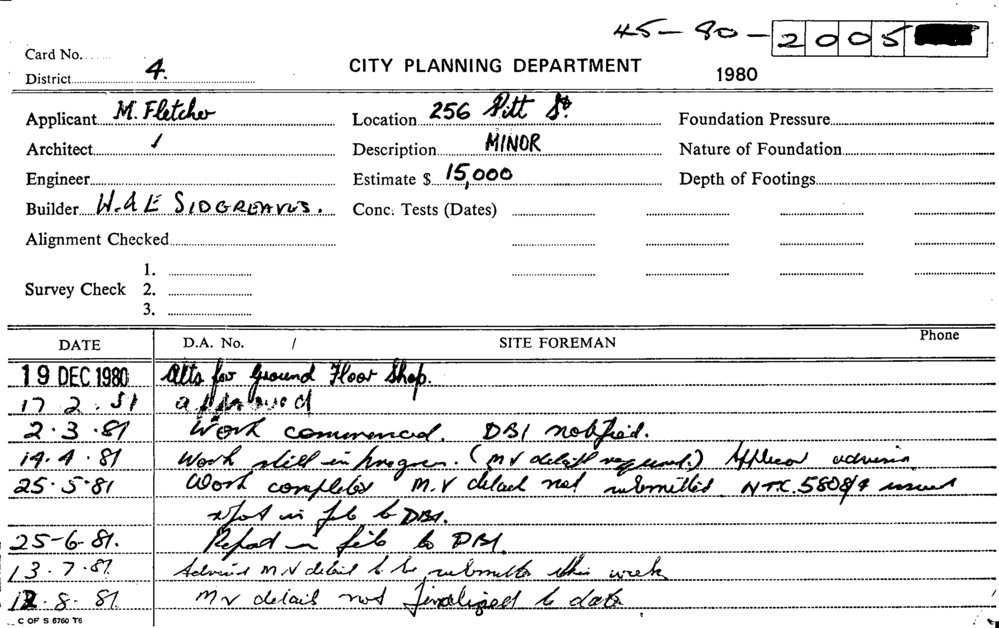 45-80-2005
Card No.
District 4.
CITY PLANNING DEPARTMENT
1980
Applicant M. Fletcher
Location 256 Pitt St.
Foundation Pressure
Architect /
Description MINOR
Nature of Foundation
Engineer
Estimate $ 15,000
Depth of Footings
Builder W. & E SIDGREAVES.
Conc. Tests (Dates)
Alignment Checked
Survey Check
1.
2.
3.
DATE D.A. No. / SITE FOREMAN Phone
19 DEC 1980 Alts for Ground Floor Shop.
17 2. 81 approved
2.3.81 Work commenced. DBI notified.
14.4.81 Work still in progress. (M V detail required.)
25.5.81 Work completed M.V detail not submitted N.T.C. 5808/9 issued
in file to DBI.
25-6-81. Report in file to DBI.
13.7.81 Advised M V detail to be submitted this week
12.8.81. M V details not finalized to date
C OF S 6760 T6